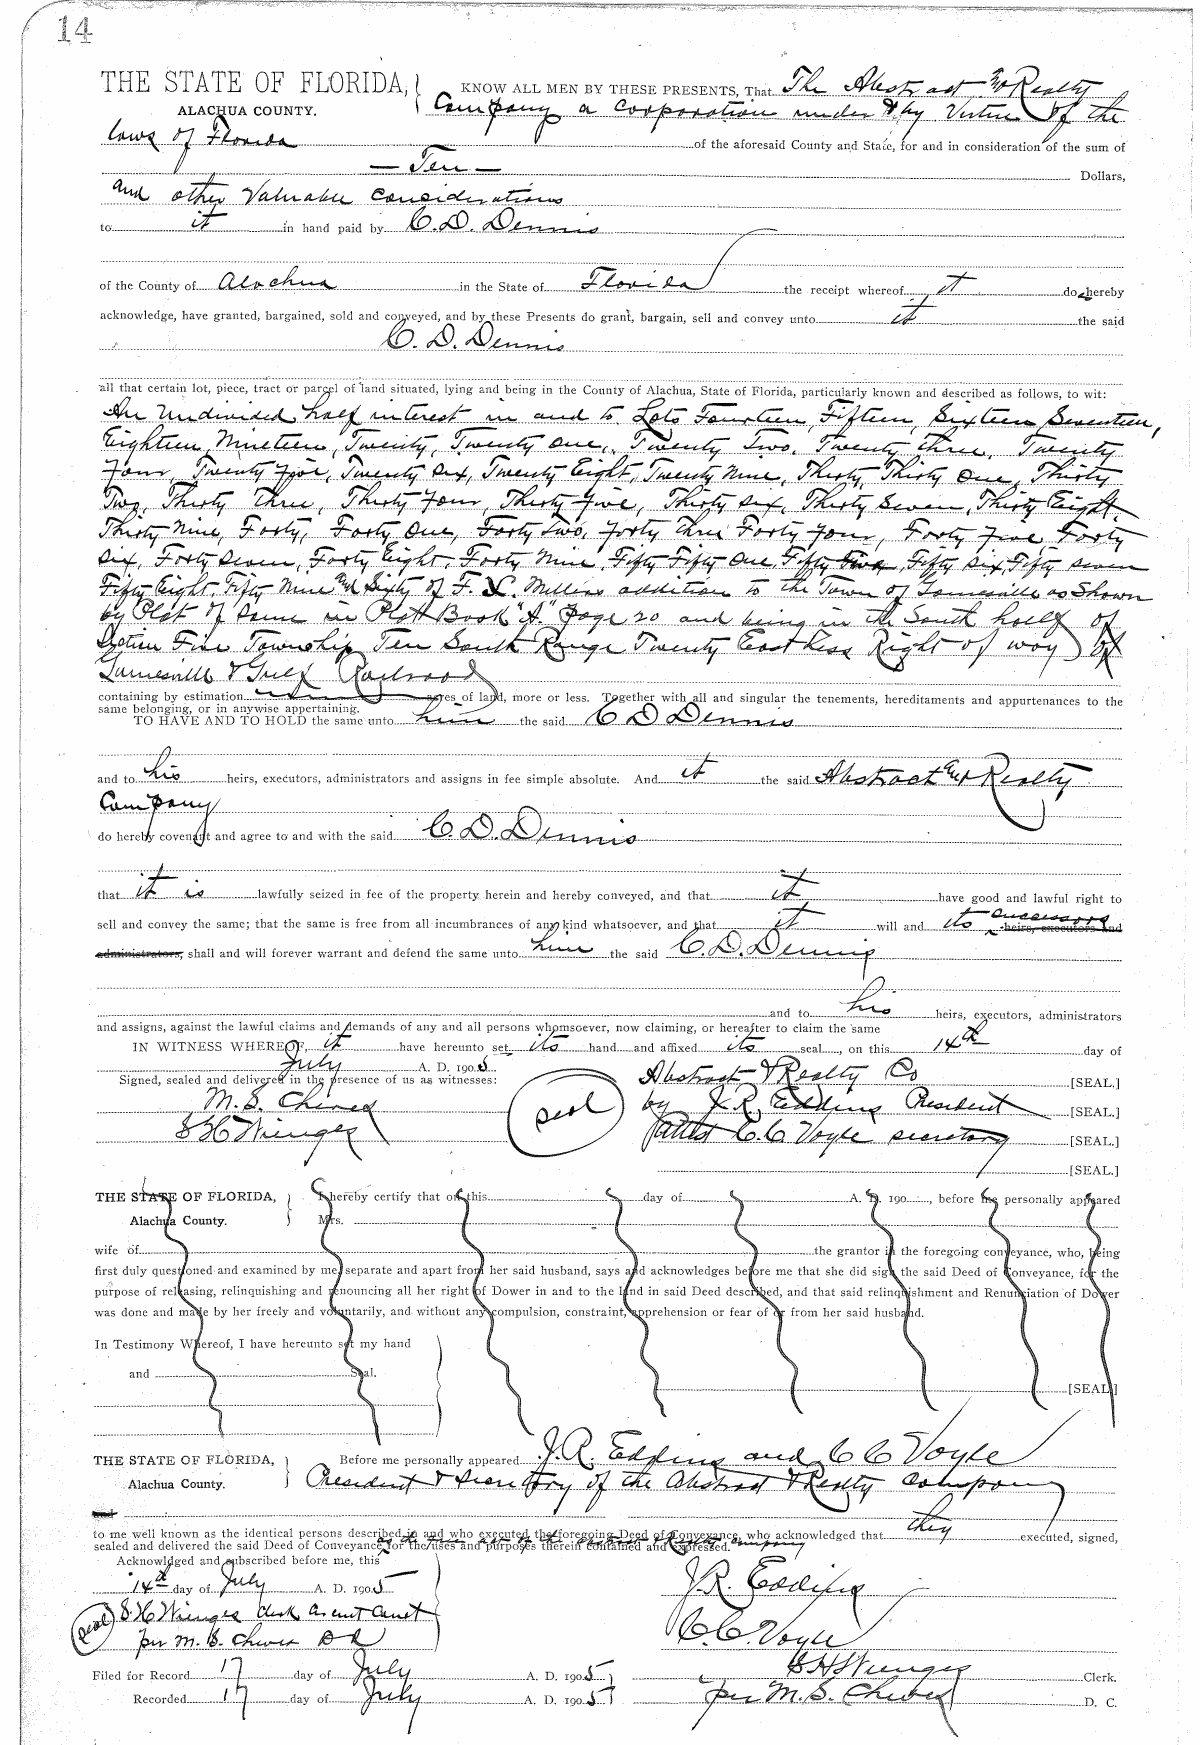 14
THE STATE OF FLORIDA, KNOW ALL MEN BY THESE PRESENTS, That The Abstract and Realty
ALACHUA COUNTY. Company a corporation under & by Virtue of the
laws of Florida of the aforesaid County and State, for and in consideration of the sum of
— Ten — Dollars,
and other Valuable considerations
to it in hand paid by C. D. Dennis
of the County of Alachua in the State of Florida the receipt whereof it do hereby
acknowledge, have granted, bargained, sold and conveyed, and by these Presents do grant, bargain, sell and convey unto it the said
C. D. Dennis
all that certain lot, piece, tract or parcel of land situated, lying and being in the County of Alachua, State of Florida, particularly known and described as follows, to wit:
An Undivided half interest in and to Lots Fourteen, Fifteen, Sixteen Seventeen,
Eighteen, Nineteen, Twenty, Twenty One, Twenty Two, Twenty three, Twenty
Four, Twenty five, Twenty six, Twenty Eight, Twenty Nine, Thirty, Thirty One, Thirty
Two, Thirty three, Thirty Four, Thirty Five, Thirty six, Thirty Seven, Thirty Eight,
Thirty Nine, Forty, Forty One, Forty two, forty three Forty Four, Forty Five, Forty
six, Forty seven, Forty Eight, Forty Nine, Fifty Fifty One, Fifty Two, Fifty six, Fifty seven
Fifty Eight, Fifty Nine and Sixty of F. X. Millers addition to the Town of Gainesville as Shown
by Plat of same in Plat Book "A" Page 20 and being in the South half of
Section Five Township Ten South Range Twenty East Less Right of way of
Gainesville & Gulf Railroad
containing by estimation acres of land, more or less. Together with all and singular the tenements, hereditaments and appurtenances to the
same belonging, or in anywise appertaining.
TO HAVE AND TO HOLD the same unto him the said C D Dennis
and to his heirs, executors, administrators and assigns in fee simple absolute. And it the said Abstract and Realty
Company
do hereby covenant and agree to and with the said C. D. Dennis
that it is lawfully seized in fee of the property herein and hereby conveyed, and that it have good and lawful right to
sell and convey the same; that the same is free from all incumbrances of any kind whatsoever, and that it will and its successors heirs, executors and
administrators, shall and will forever warrant and defend the same unto him the said C. D. Dennis
and to his heirs, executors, administrators
and assigns, against the lawful claims and demands of any and all persons whomsoever, now claiming, or hereafter to claim the same
IN WITNESS WHEREOF, it have hereunto set its hand and affixed its seal, on this 14th day of
July A. D. 1905
Signed, sealed and delivered in the presence of us as witnesses: Abstract & Realty Co [SEAL.]
M. S. Cheves seal by J. R. Eddins President [SEAL.]
S H Wienges Attest C. C Voyle secretary [SEAL.]
[SEAL.]
THE STATE OF FLORIDA, I hereby certify that on this day of A. D. 190, before me personally appeared
Alachua County. Mrs.
wife of the grantor in the foregoing conveyance, who, being
first duly questioned and examined by me, separate and apart from her said husband, says and acknowledges before me that she did sign the said Deed of Conveyance, for the
purpose of releasing, relinquishing and renouncing all her right of Dower in and to the land in said Deed described, and that said relinquishment and Renunciation of Dower
was done and made by her freely and voluntarily, and without any compulsion, constraint, apprehension or fear of or from her said husband.
In Testimony Whereof, I have hereunto set my hand
and Seal.
[SEAL]
THE STATE OF FLORIDA, Before me personally appeared J. R. Eddins and C C Voyle
Alachua County. President & secretary of the Abstract & Realty company
and
to me well known as the identical persons described in and who executed the foregoing Deed of Conveyance, who acknowledged that they executed, signed,
sealed and delivered the said Deed of Conveyance, for the uses and purposes therein contained and expressed.
Acknowldged and subscribed before me, this
14th day of July A. D. 1905 J. R. Eddins
seal S. H Wienges clerk Circuit Court
per M. S. Cheves DC C. C. Voyle
Filed for Record 17 day of July A. D. 1905 S H Wienges Clerk.
Recorded 17 day of July A. D. 1905 per M. S. Cheves D. C.